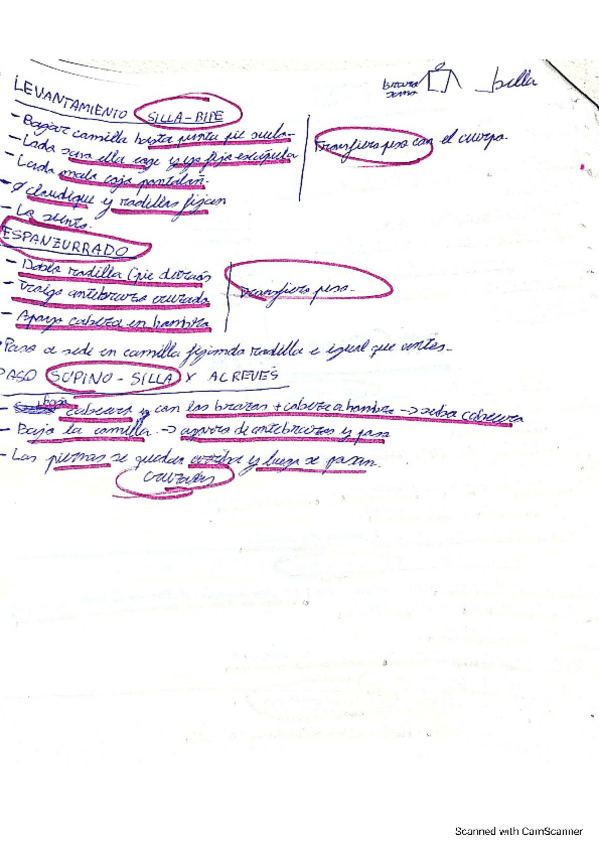 brazo silla
sano
LEVANTAMIENTO SILLA-BIPE
- Bajar camilla hasta punta pie suelo - Transfiero peso con el cuerpo.
- Lado sano ella coge y yo fijo escápula
- Lado malo cojo pantalón.
- claudique y rodillas fijan
- La siento.
ESPANZURRADO
- Dobla rodilla (pie detrás Transfiero peso -
- Traigo antebrazo cruzado
- Apoyo cabeza en hombro
Paso a sede en camilla fijando rodilla e igual que antes -
PASO SUPINO - SILLA Y AL REVÉS
- bajo cabecera y con los brazos + cabeza a hombro -> sube cabecera
- Bajo la camilla. -> agarro de antebrazos y paso
- Las piernas se quedan arriba y luego se pasan.
cruzadas
Scanned with CamScanner